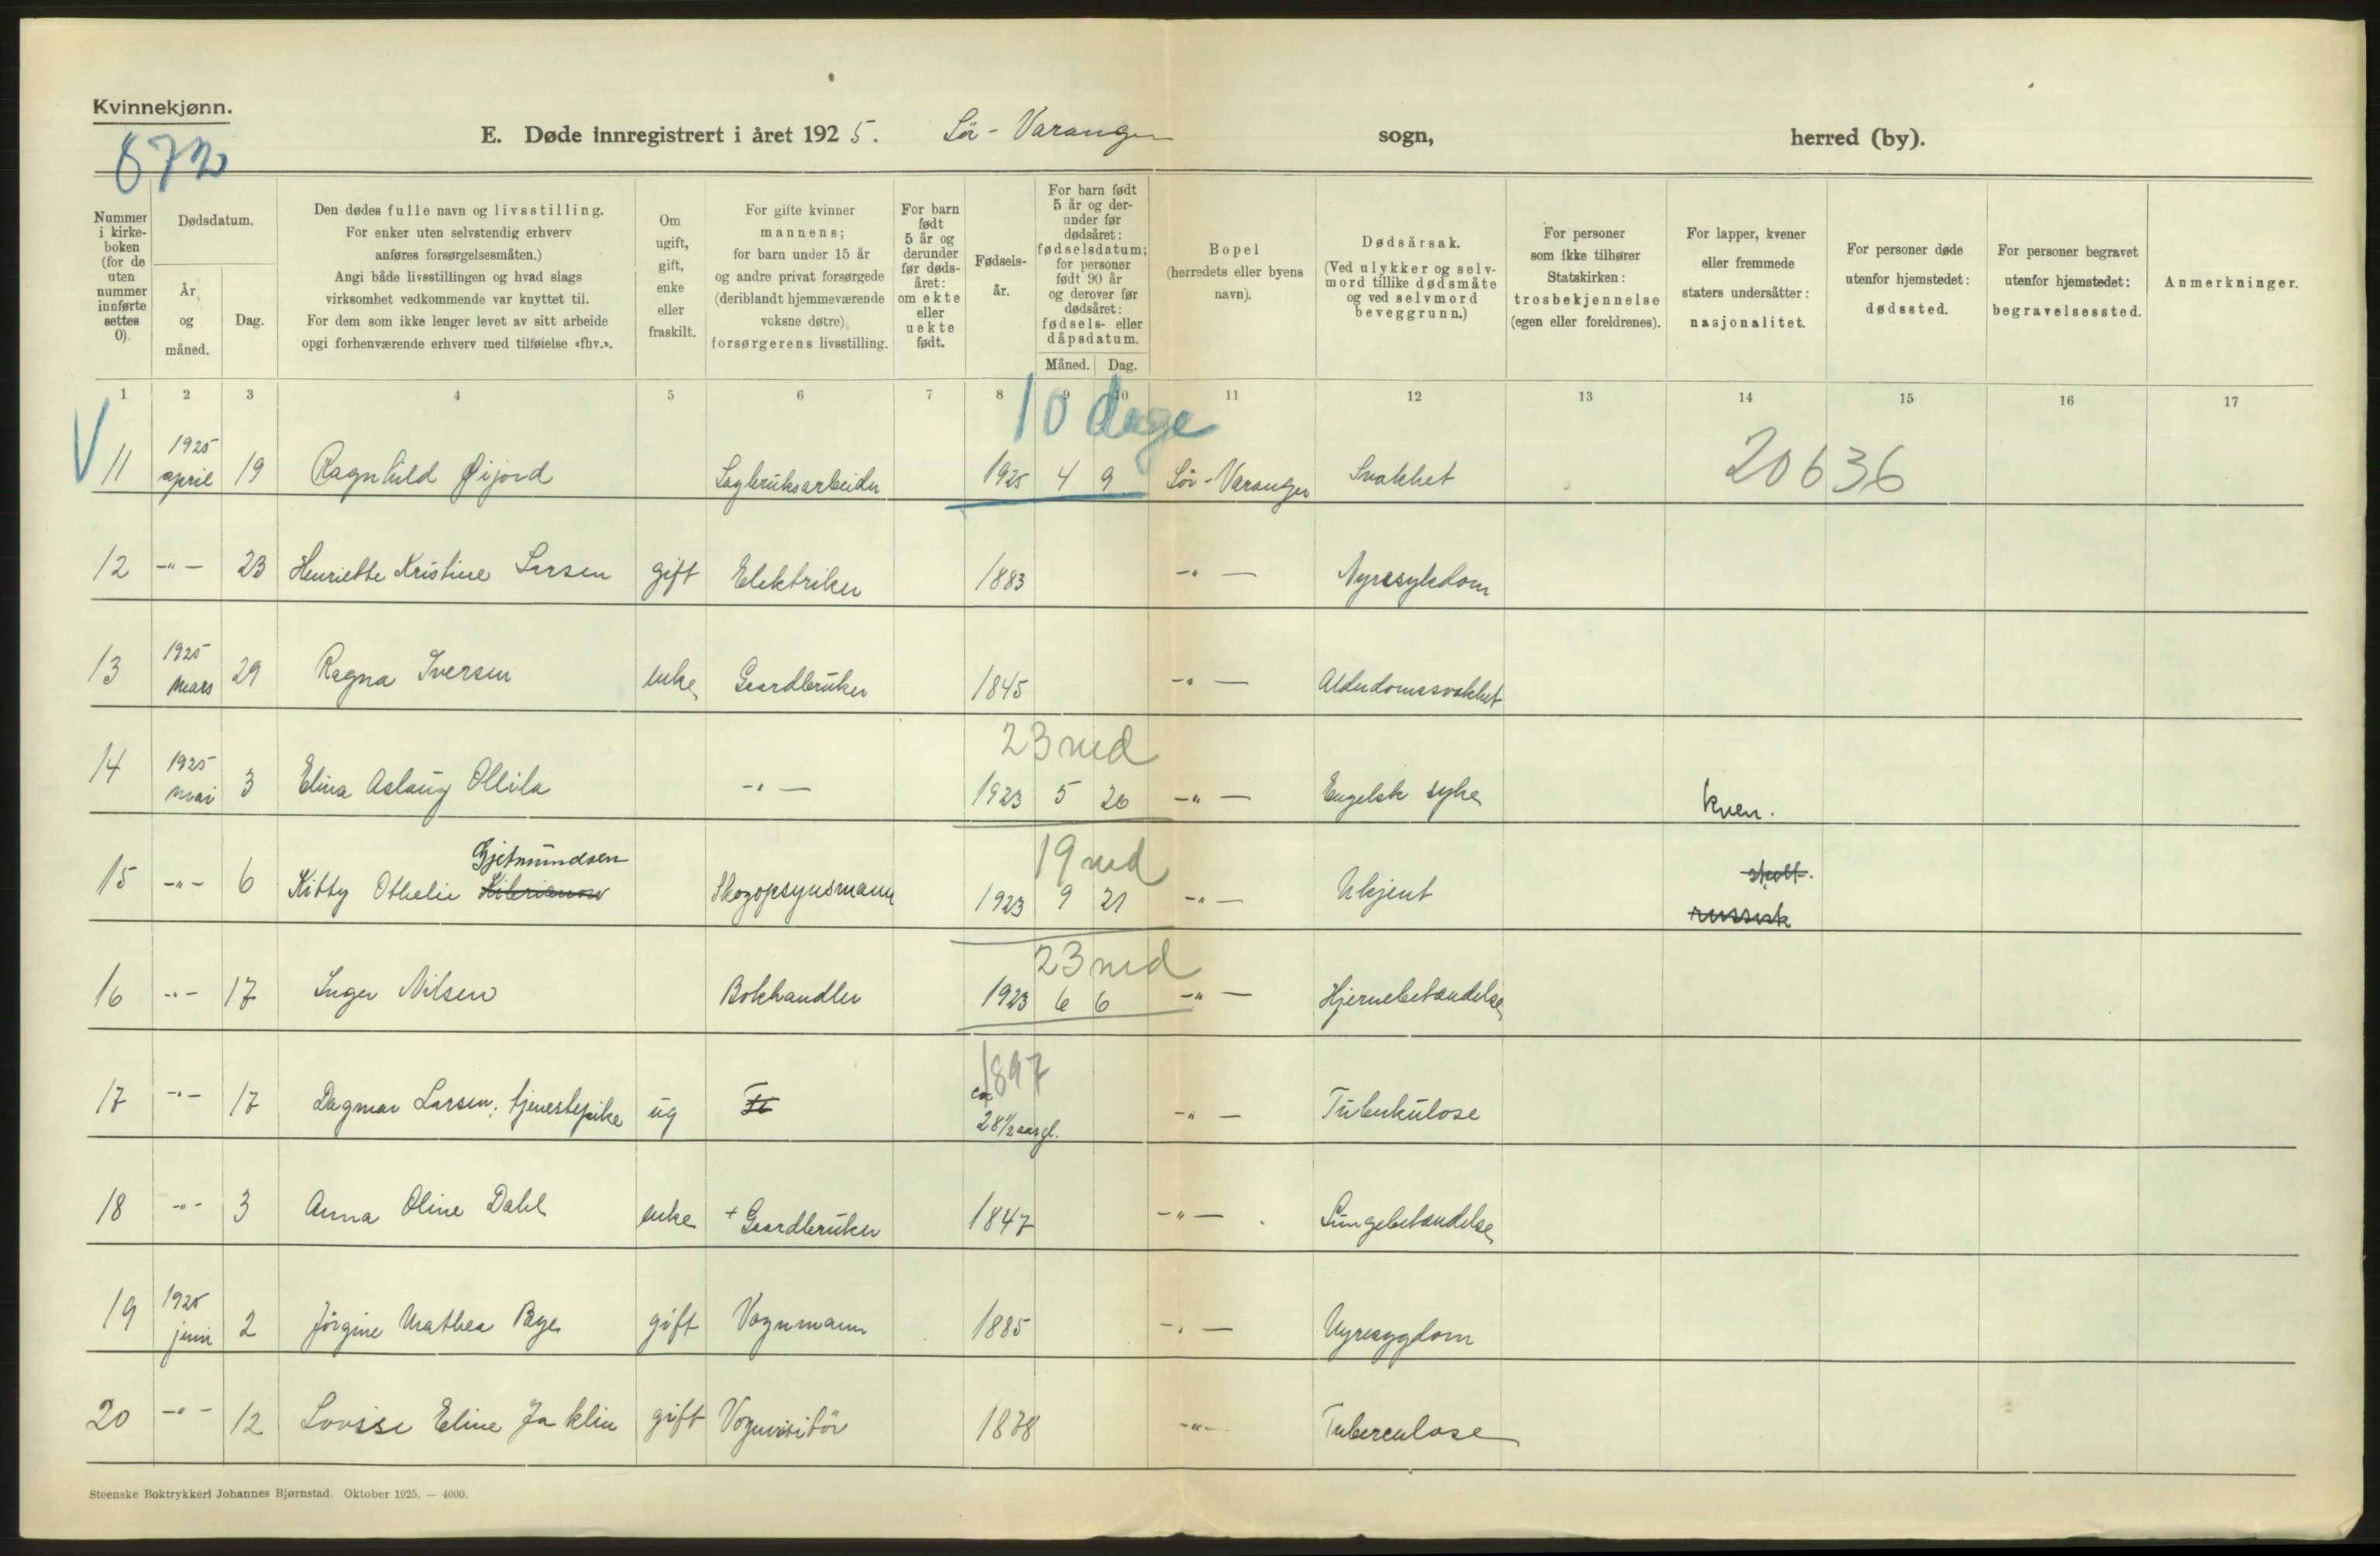 Kvinnekjønn.
872
E. Døde innregistrert i året 1925. Sör-Varanger sogn, herred (by).
Nummer i kirke-boken (for de uten nummer innførte settes 0).
Dødsdatum.
År og måned.
Dag.
Den dødes fulle navn og livsstilling.
For enker uten selvstendig erhverv
anføres forsørgelsesmåten.)
Angi både livsstillingen og hvad slags
virksomhet vedkommende var knyttet til.
For dem som ikke lenger levet av sitt arbeide
opgi forhenværende erhverv med tilføielse «fhv.».
Om ugift, gift, enke eller fraskilt.
For gifte kvinner
mannens;
for barn under 15 år
og andre privat forsørgede
(deriblandt hjemmeværende
voksne døtre)
forsørgerens livsstilling.
For barn født 5 år og derunder før døds-året: om ekte eller uekte født.
Fødsels-år.
For barn født 5 år og der-under før dødsåret: fødselsdatum; for personer født 90 år og derover før dødsåret: fødsels- eller dåpsdatum.
Måned. Dag.
Bopel
(herredets eller byens
navn).
Dødsårsak.
(Ved ulykker og selv-
mord tillike dødsmåte
og ved selvmord
beveggrunn.)
For personer
som ikke tilhører
Statskirken:
trosbekjennelse
(egen eller foreldrenes).
For lapper, kvener
eller fremmede
staters undersåtter:
nasjonalitet.
For personer døde
utenfor hjemstedet:
dødssted.
For personer begravet
utenfor hjemstedet:
begravelsessted.
Anmerkninger.
1 2 3 4 5 6 7 8 9 10 11 12 13 14 15 16 17
10 dage
V 11 1925 april 19 Ragnhild Øijord Sagbruksarbeider 1925 4 9 Sör-Varanger Svakhet 20636
12 -"- 23 Henriette Kristine Larsen gift Elektriker 1883 -"- Nyresykdom
13 1925 mars 29 Ragna Iversen enke Gaardbruker 1845 -"- Alderdomssvakhet
23 md
14 1925 mai 3 Elina Aslaug Ollila -"- 1923 5 20 -"- Engelsk syke kven.
Gjetmundsen 19 md skolt.
15 -"- 6 Kitty Othelie Skogopsynsmann 1923 9 21 -"- Ukjent russisk
23 md
16 -"- 17 Inger Nilsen Bokhandler 1923 6 6 -"- Hjernebetændelse
1897
17 -"- 17 Dagmar Larsen, tjenestepike ug ca 28 1/2 aar gl. -"- Tuberkulose
18 -"- 3 Anna Oline Dahl enke + Gaardbruker 1847 -"- Lungebetændelse
19 1925 juni 2 Jörgine Mathea Bye gift Vognmann 1885 -"- Nyresygdom
20 -"- 12 Lovise Eline Jaklin gift Vognvisitör 1878 -"- Tuberculose
Steenske Boktrykkeri Johannes Bjørnstad. Oktober 1925. — 4000.